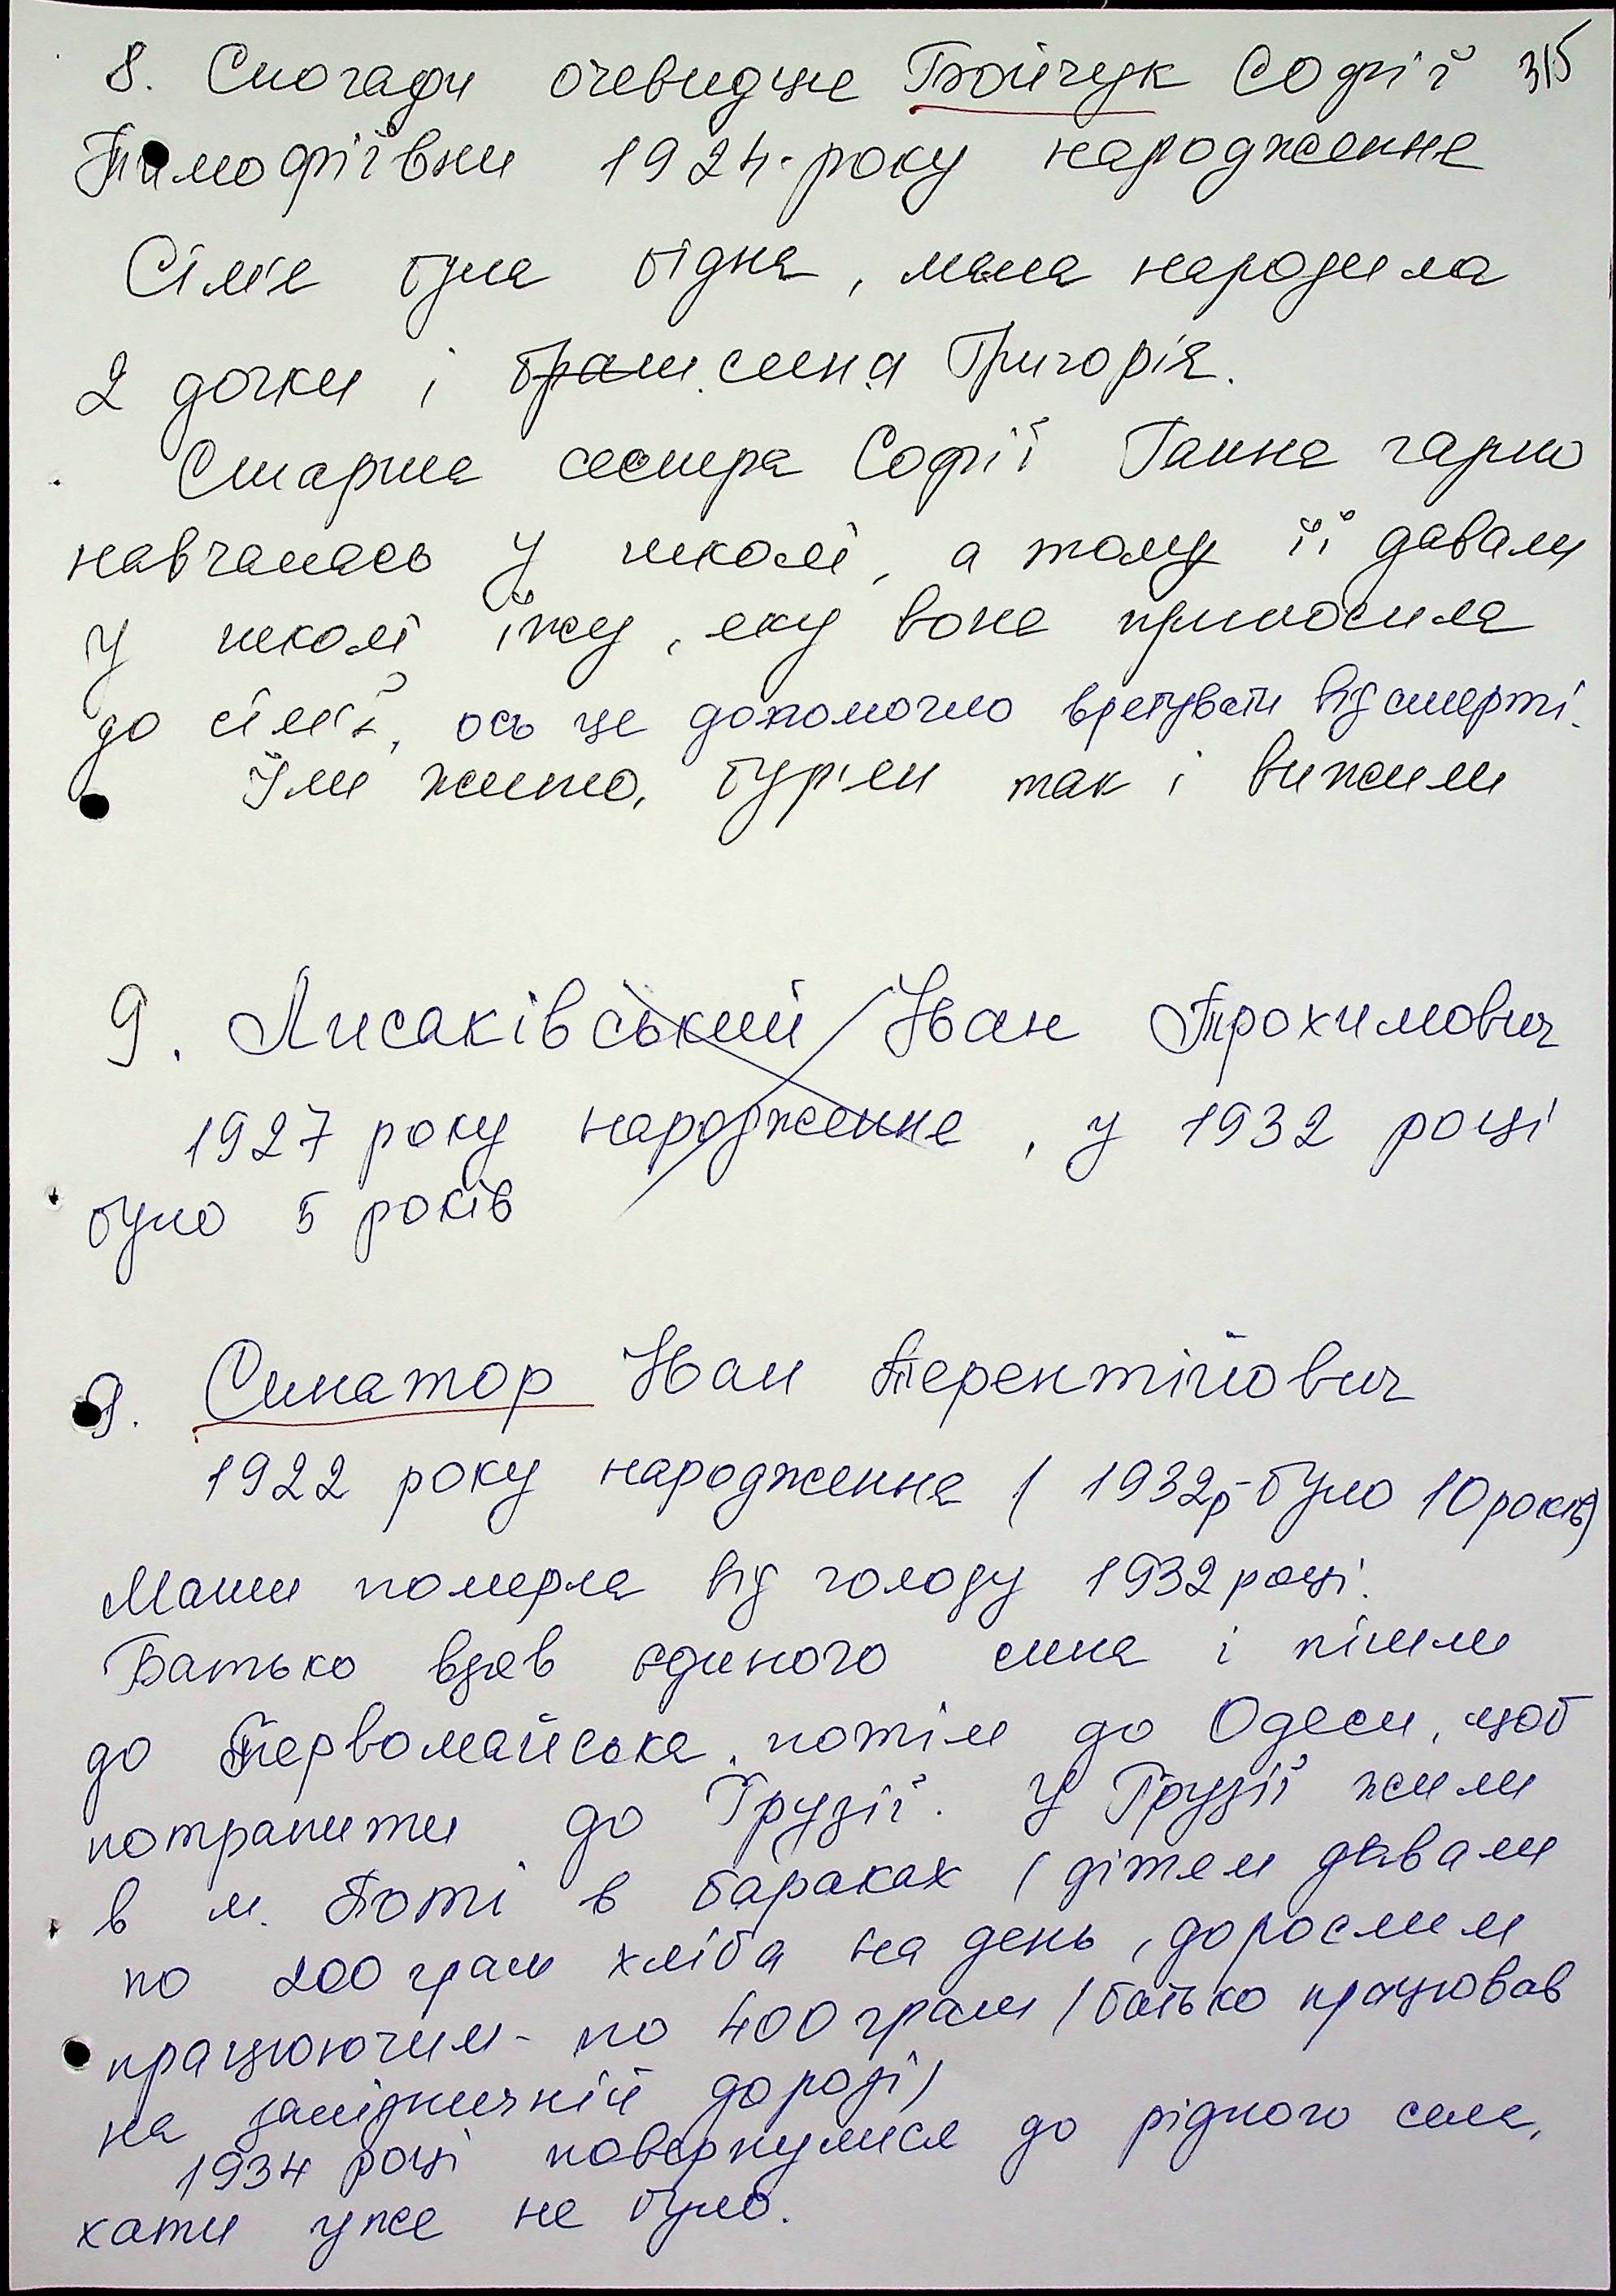 8. Спогади очевидця Бойчук Софії 315
Тимофіївни 1924 року народження
Сім'я була бідна, мама народила
2 дочки і брат сина Григорія.
Старша сестра Софії Ганна гарно
навчалась у школі, а тому їй давали
у школі їжу, яку вона приносила
до сім'ї, ось це допомогло врятувати від смерті.
Їли жито, бур'ян так і вижили
9. Лисаківський Іван Трохимович
1927 року народження, у 1932 році
було 5 років
9. Синатор Іван Терентійович
1922 року народження (1932р - було 10 років)
Мати померла від голоду 1932 році.
Батько взяв єдиного сина і пішли
до Первомайська, потім до Одеси, щоб
потрапити до Грузії. У Грузії жили
в м. Поті в бараках (дітям давали
по 200 грам хліба на день, дорослим
працюючим - по 400 грам (батько працював
на залізничній дорозі)
1934 році повернулися до рідного села,
хати уже не було.